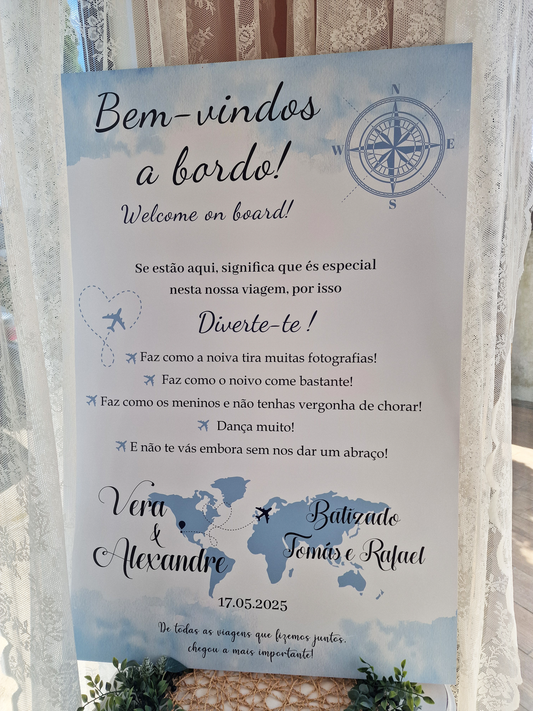 Bem-vindos
a bordo!
Welcome on board!
N
W E
S
Se estão aqui, significa que és especial
nesta nossa viagem, por isso
Diverte-te !
Faz como a noiva tira muitas fotografias!
Faz como o noivo come bastante!
Faz como os meninos e não tenhas vergonha de chorar!
Dança muito!
E não te vás embora sem nos dar um abraço!
Vera
&
Alexandre
Batizado
Tomás e Rafael
17.05.2025
De todas as viagens que fizemos juntos,
chegou a mais importante!